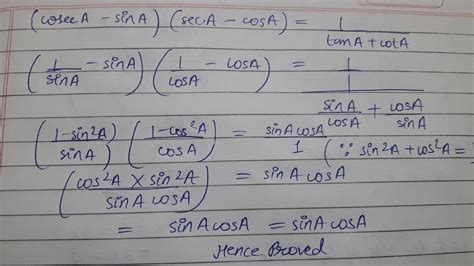 (cosecA - sinA) (secA - cosA) = 1/(tanA + cotA)
(1/sinA - sinA) (1/cosA - cosA) = 1/(sinA/cosA + cosA/sinA)
((1-sin²A)/sinA) ((1-cos²A)/cosA) = sinA cosA/1 (∵ sin²A + cos²A =
(cos²A × sin²A/sinA cosA) = sinA cosA
= sinA cosA = sinA cosA
Hence Proved